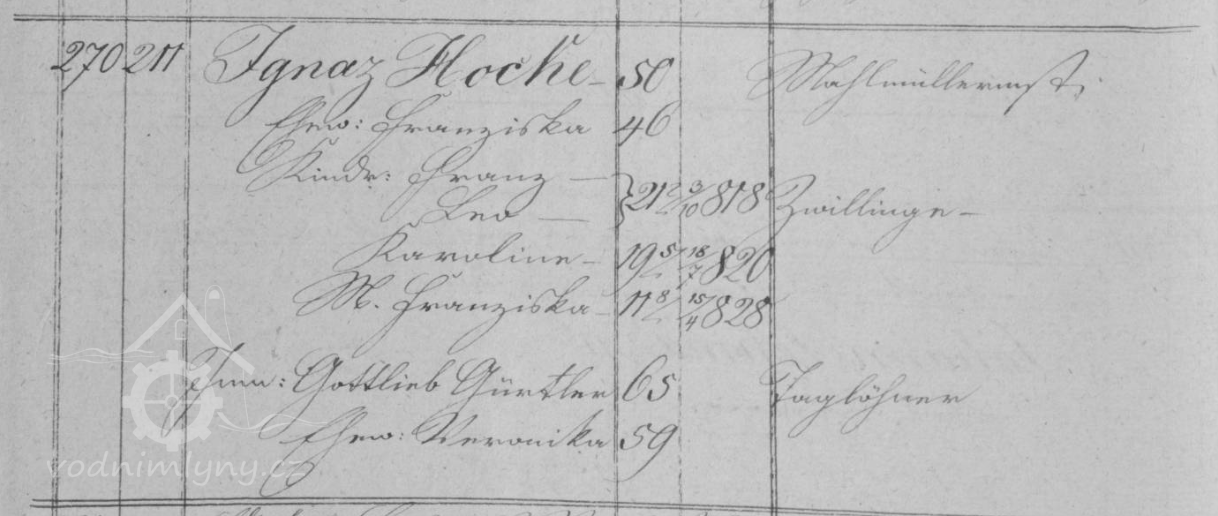 270 211 Ignaz Hocke 50 Mahlmüllermst.
Ehew: Franziska 46
Kindr: Franz —
Leo — } 21 3/10 818 Zwillinge —
Karoline — 19 5/ 18/7 820
M. Franziska — 11 8/ 15/4 828
Inn: Gottlieb Gürtler 65 Taglöhner
Ehew: Veronika 59
vodnimlyny.cz